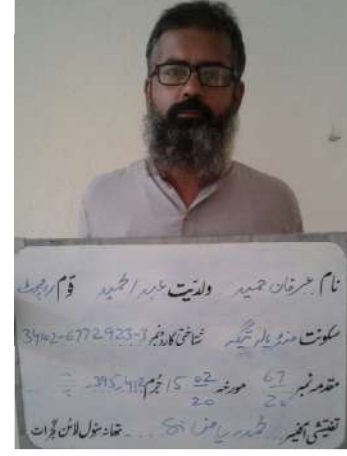 نام عرفان حمید ولدیت عبدالحمید قوم راجپوت
سکونت شناختی کارڈ نمبر 34102-6772923-3
مقدمہ نمبر 67/20 مورخہ 15 02/20 جرم 395,412
تفتیشی آفیسر محمد ریاض تھانہ سول لائن گجرات